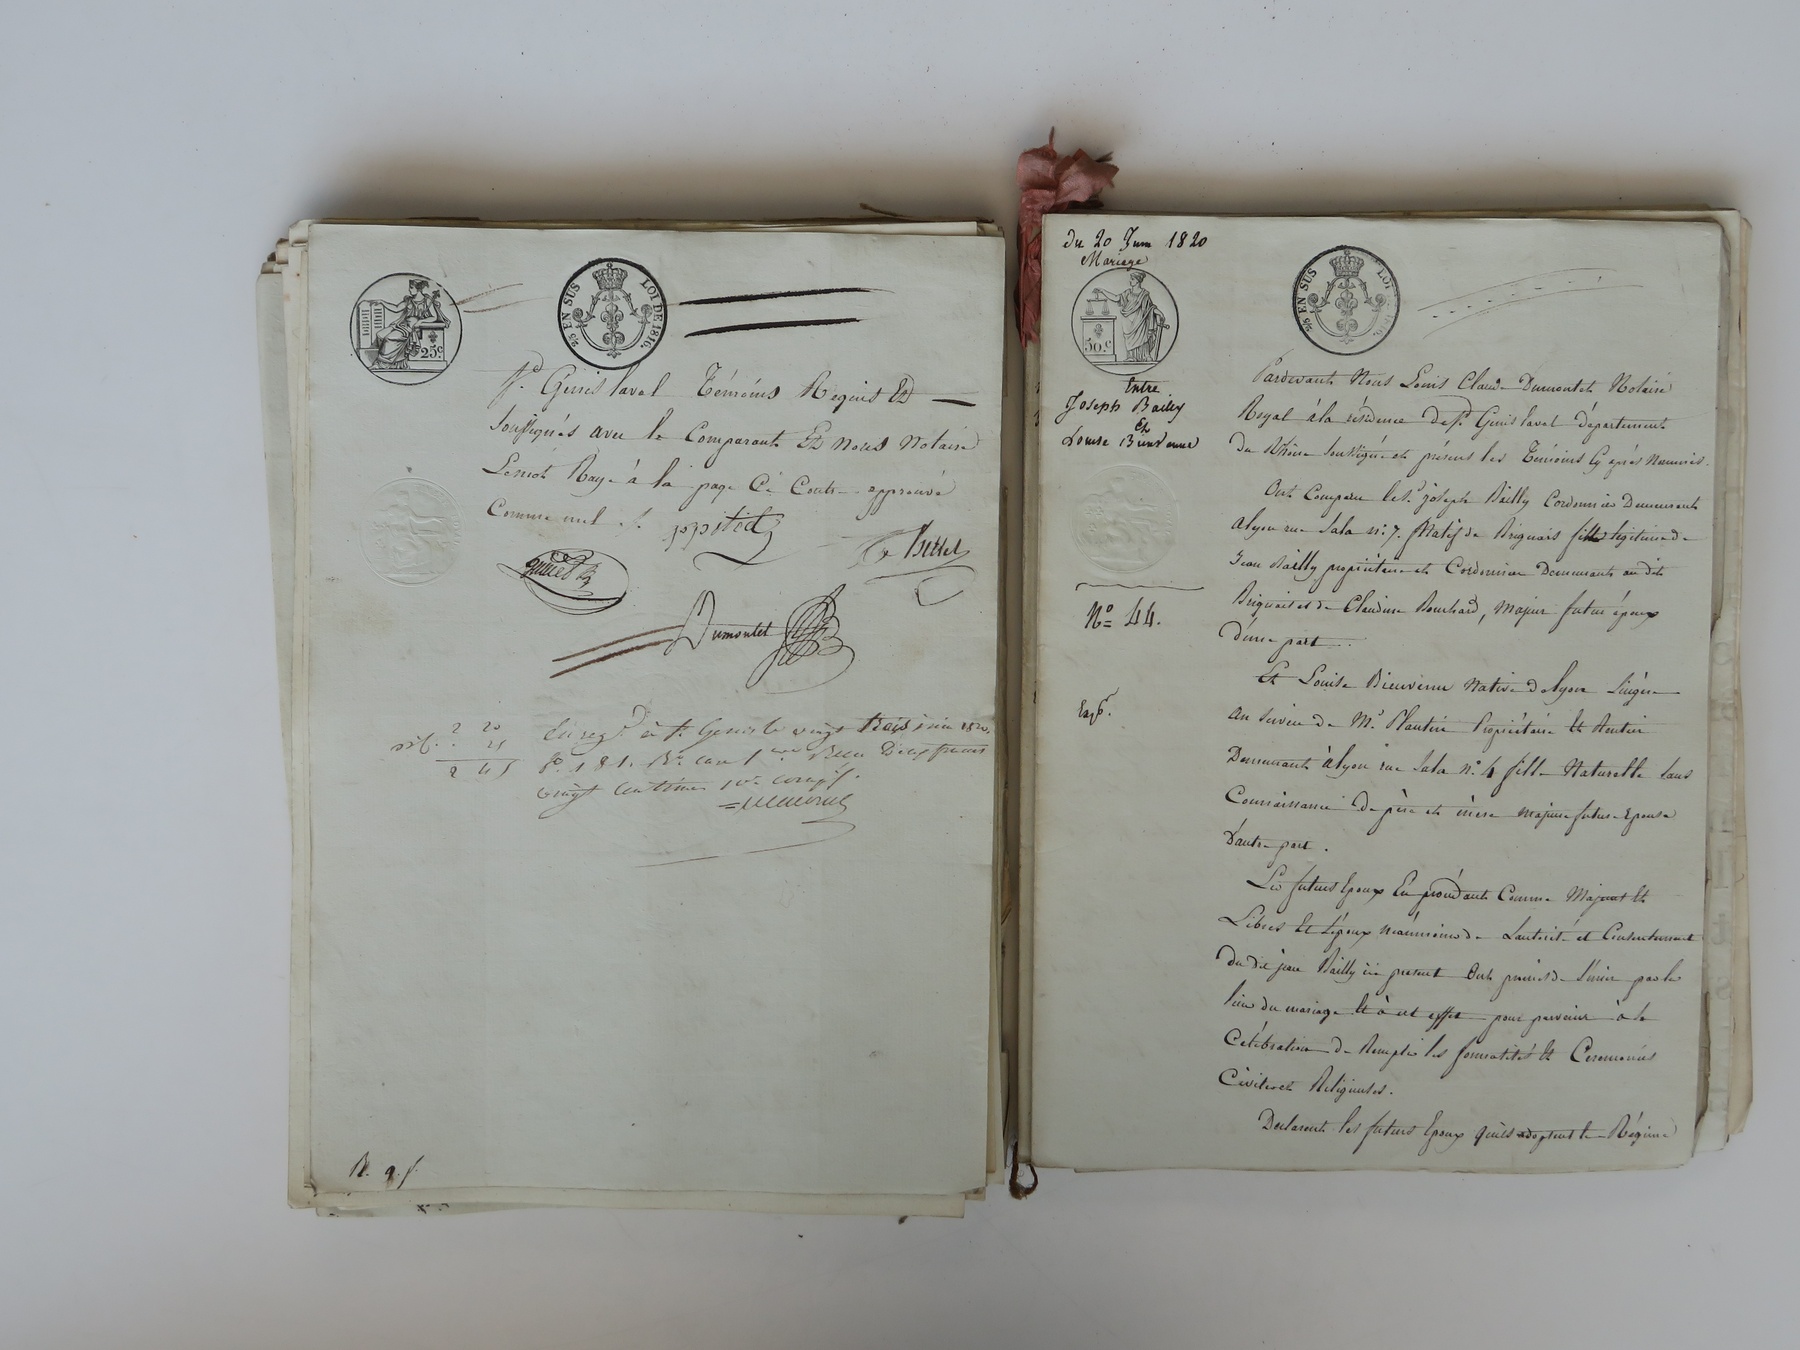 25c
2/5 EN SUS LOI DE 1816.
St. Genis laval Témoins Requis Et
soussignés avec le Comparant Et nous Notaire
Le mot Rayé à la page Ci Contre approuvé
Comme nul
Dumontet
2 20
2 45
Enregé à St. Genis le vingt trois juin 1820.
fo. 181. Ro. case 1ere Reçu Deux francs
vingt centimes 10e compris.
R. 9.
du 20 Juin 1820
Mariage
50.c
2/5 EN SUS LOI
Entre
Joseph Bailly
Et
Louise Bienvenue
No 44.
Expé.
Pardevant Nous Louis Claude Dumontet Notaire
Royal à la résidence de St. Genis laval département
du Rhône soussigné et présens les Témoins Cy après Nommés.
Ont Comparu le Sr. joseph Bailly Cordonnier Demeurant
à lyon rue Sala no. 7. Natif de Brignais fils légitime de
Jean Bailly propriétaire et Cordonnier Demeurant au dit
Brignais et de Claudine Bouchard, majeur futur époux
d'une part.
Et Louise Bienvenue Native de lyon lingère
au service de Mr. Plantin Propriétaire Et Rentier
Demeurant à lyon rue Sala no. 4 fille Naturelle sans
Connaissance de père et mère majeure future Epouse
D'autre part.
Les futurs Epoux En procédant Comme Majeurs Et
Libres Et l'époux néanmoins de L'autorité et Consentement
du dit jean Bailly ici présent Ont promis de s'unir par le
lien du mariage Et à cet effet pour parvenir à la
Célébration De Remplir les formalités Et Cérémonies
Civiles et Religieuses.
Déclarent les futurs Epoux qu'ils adoptent le Régime